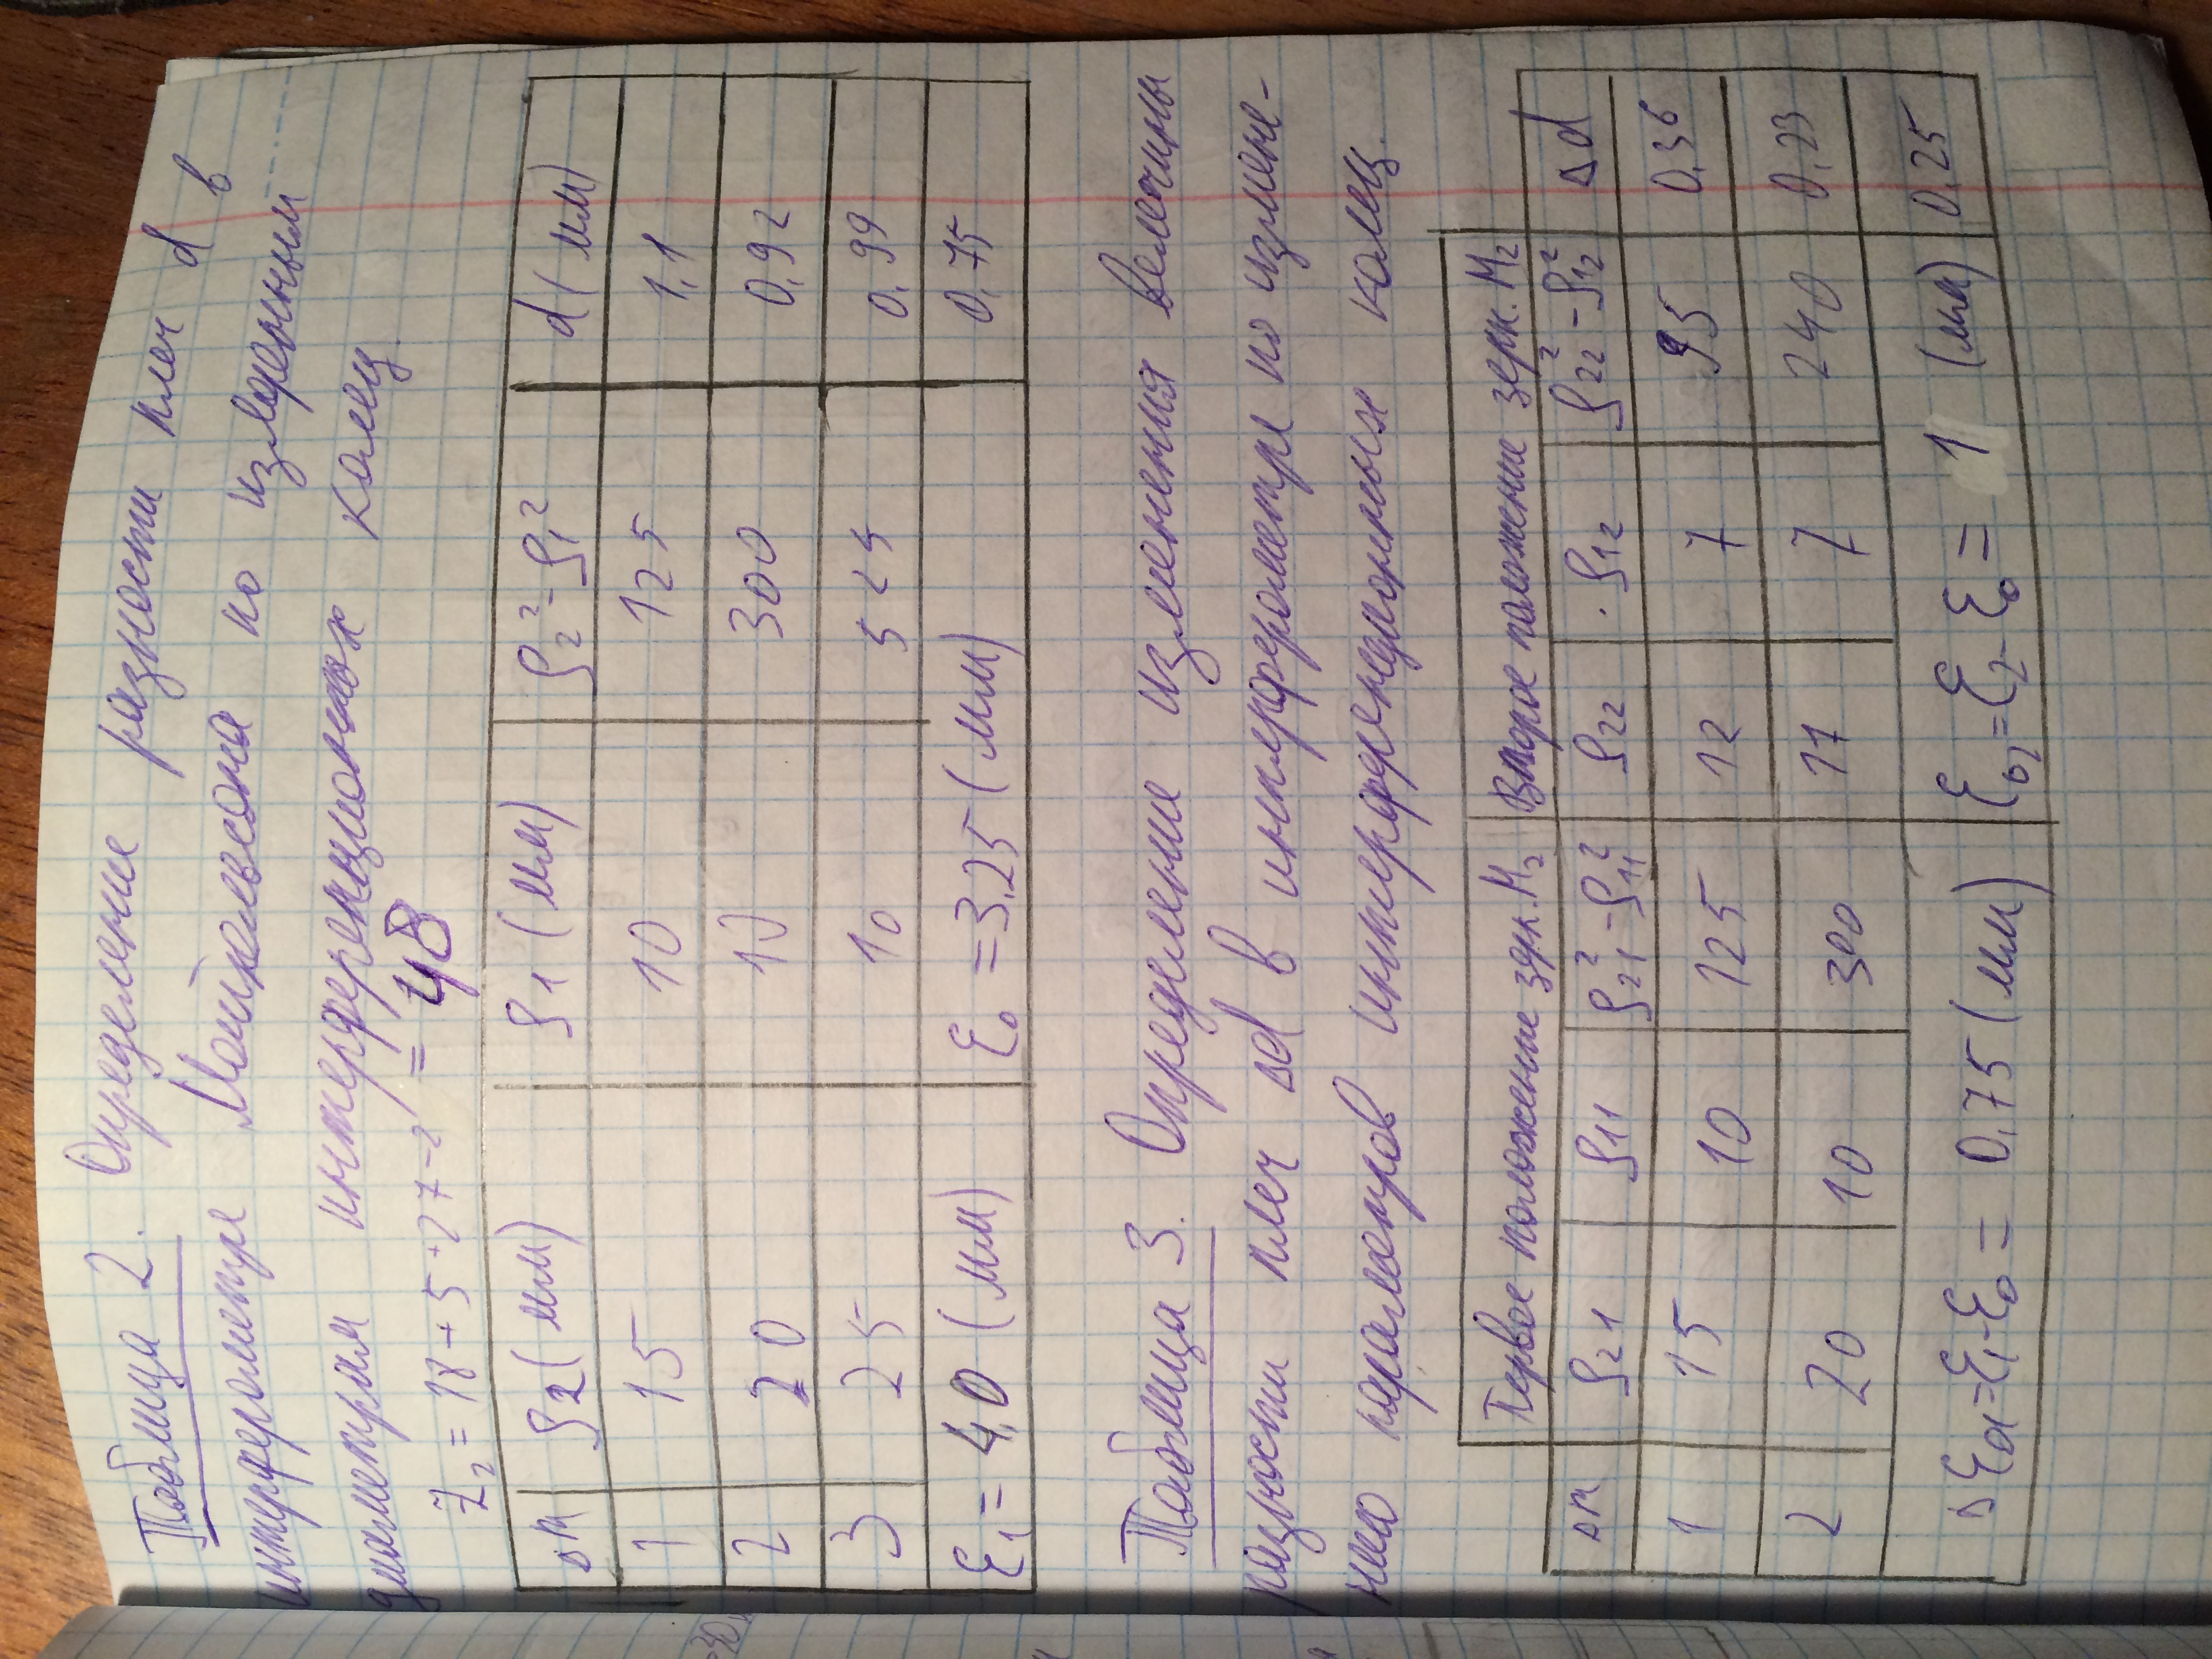 Таблица 2. Определение разности плеч d в
интерферометре Майкельсона по измеренным
диаметрам интерференционных колец.
Z₂ = 18 + 5 + 27 - 2 = 48
Δm ρ₂ (мм) ρ₁ (мм) ρ₂² - ρ₁² d (мм)
1 15 10 125 1,1
2 20 10 300 0,92
3 25 10 525 0,99
ℰ₁ = 4,0 (мм) ℰ₀ = 3,25 (мм) 0,75
Таблица 3. Определение изменения величины
разности плеч Δd в интерферометре по измене-
нию параметров интерференционных колец.
Первое положение зерк. М₂ Второе положение зерк. М₂
Δm ρ₂₁ ρ₁₁ ρ₂₁² - ρ₁₁² ρ₂₂ ρ₁₂ ρ₂₂² - ρ₁₂² Δd
1 15 10 125 12 7 95 0,36
2 20 10 300 17 7 240 0,23
Δℰ₀₁ = ℰ₁ - ℰ₀ = 0,75 (мм) ℰ₀₂ = ℰ₂ - ℰ₀ = 1 (мм) 0,25